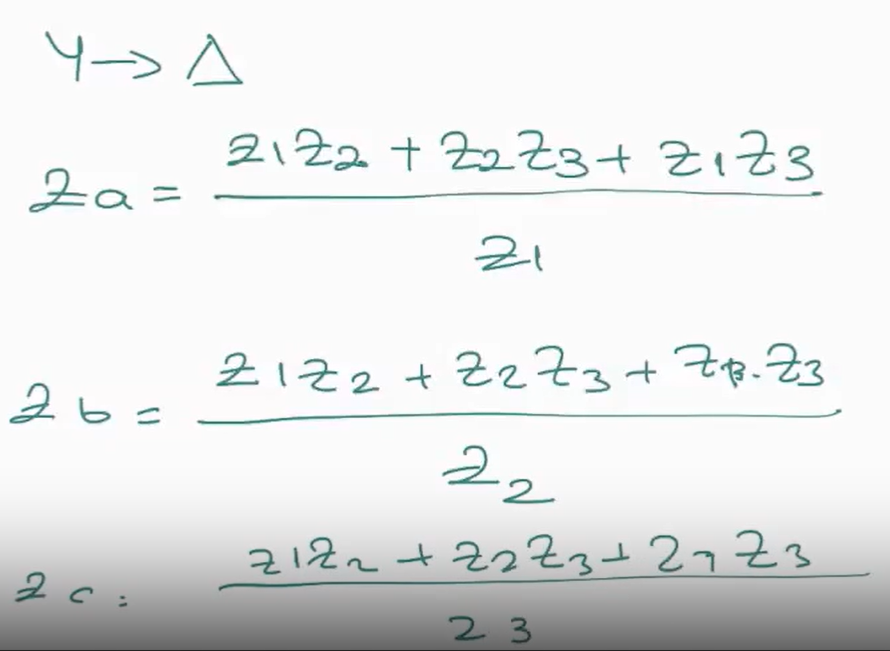 Y → Δ
Z1Z2 + Z2Z3 + Z1Z3
Za =
Z1
Z1Z2 + Z2Z3 + Z1.Z3
Zb =
Z2
Z1Z2 + Z2Z3 + Z1Z3
Zc =
Z3